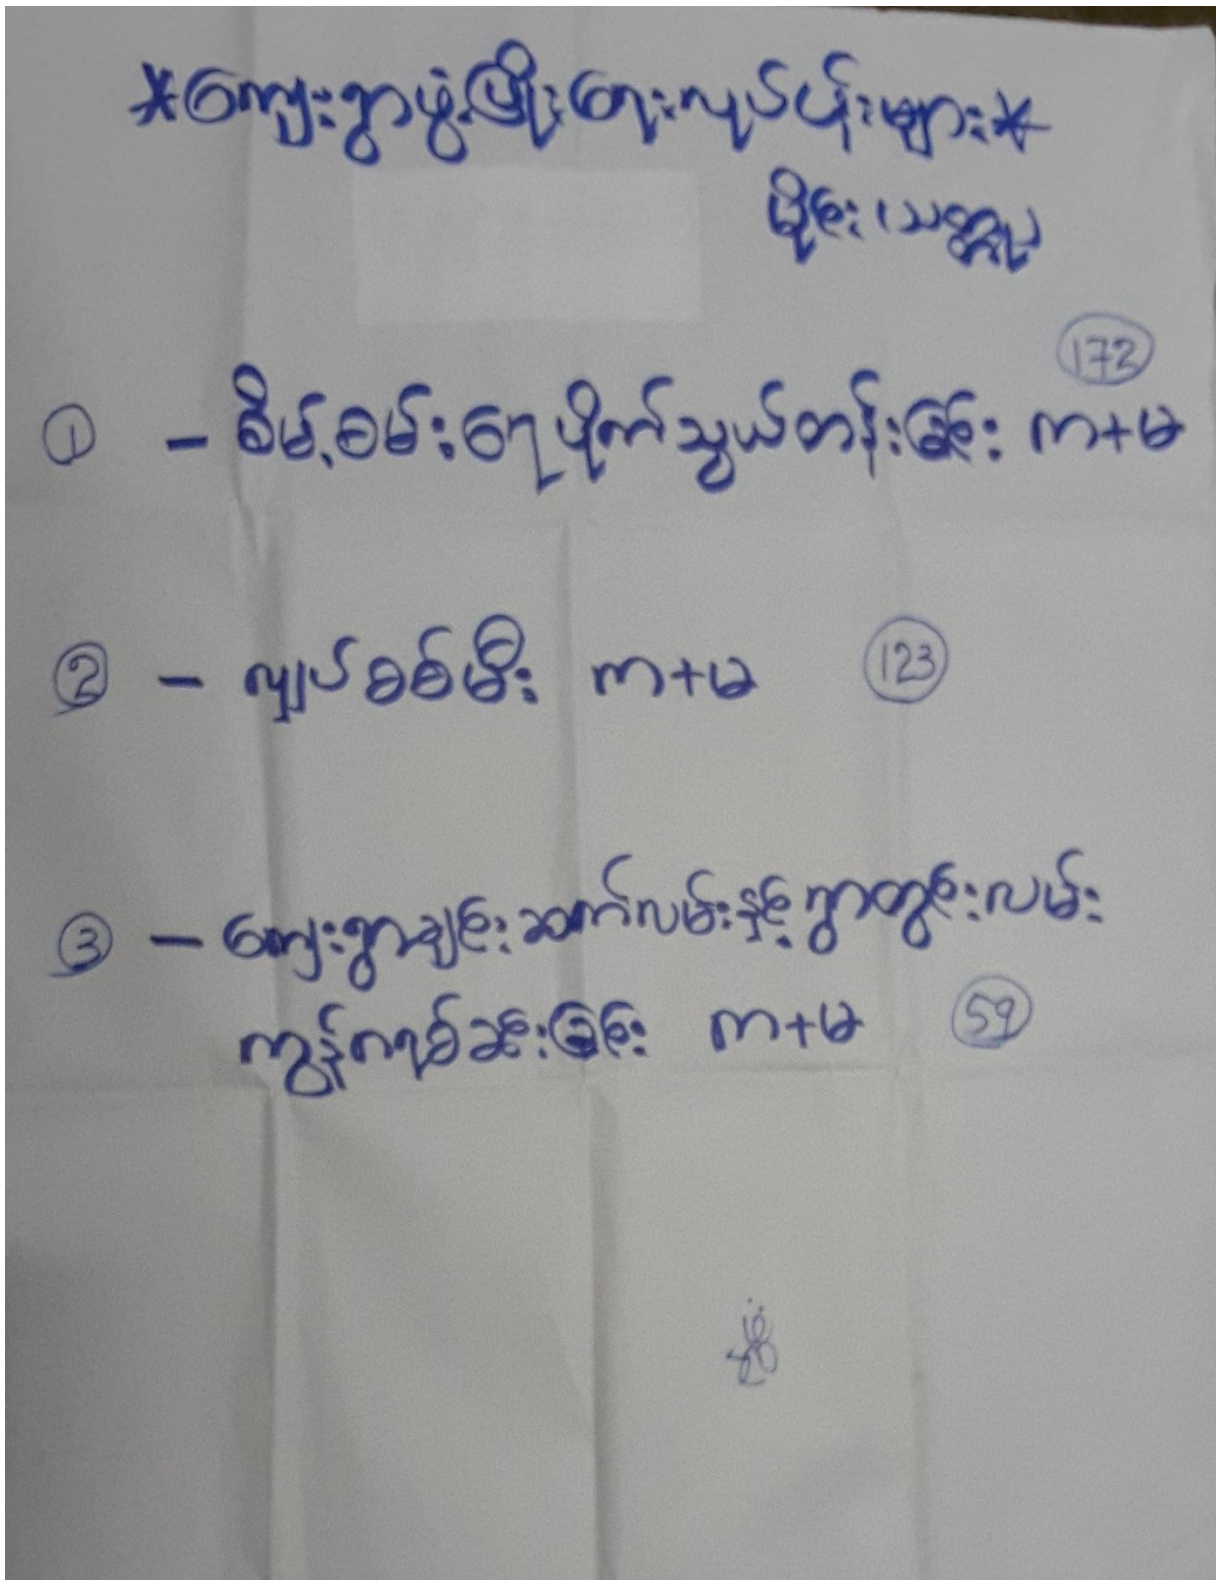 *ကျေးရွာဖွံ့ဖြိုးရေးလုပ်ငန်းများ*
172
① - စိမ့်စမ်းရေပိုက်သွယ်တန်းခြင်း က+မ
② - လျှပ်စစ်မီး က+မ 123
③ - ကျေးရွာချင်းဆက်လမ်းနှင့်ရွာတွင်းလမ်း
ကွန်ကရစ်ခင်းခြင်း က+မ 59